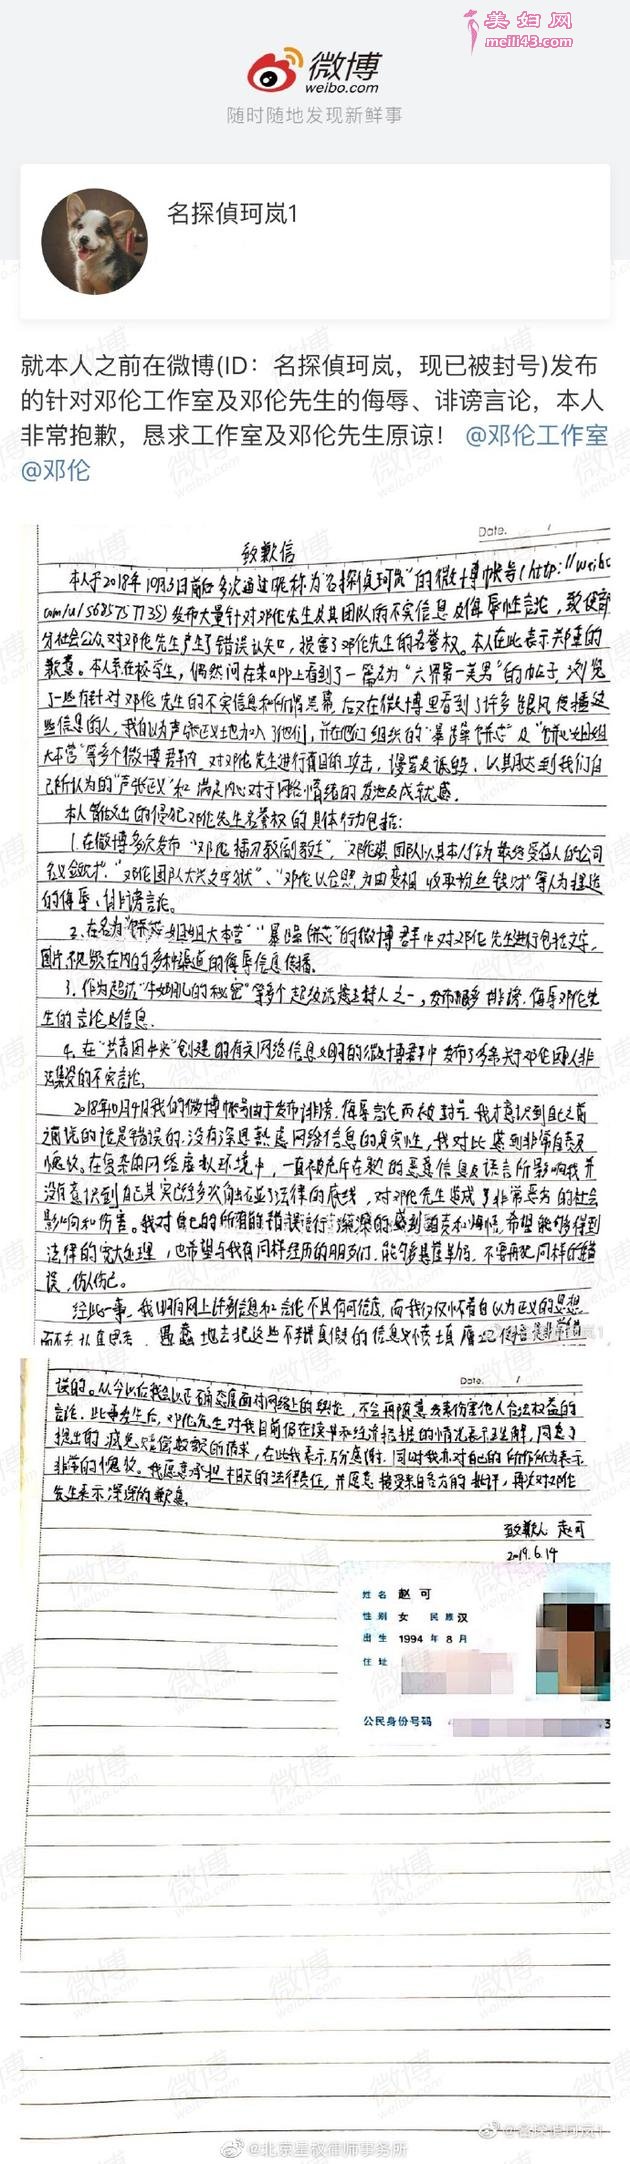 美妇网
meili43.com
微博
weibo.com
随时随地发现新鲜事
名探偵珂岚1
就本人之前在微博(ID：名探偵珂岚，现已被封号)发布
的针对邓伦工作室及邓伦先生的侮辱、诽谤言论，本人
非常抱歉，恳求工作室及邓伦先生原谅！ @邓伦工作室
@邓伦
Date. /
致歉信
本人于2018年10月3日前后多次通过昵称为"名探偵珂岚"的微博帐号(http://weibo.
com/u/5685757735)发布大量针对邓伦先生及其团队的不实信息及侮辱性言论，致使部
分社会公众对邓伦先生产生了错误认知，损害了邓伦先生的名誉权。本人在此表示郑重的
歉意。本人系在校学生，偶然间在某app上看到了一篇名为"六界第一美男"的帖子，浏览
了一些有针对邓伦先生的不实信息和所谓黑幕，后又在微博里看到了许多跟风传播这
些信息的人，我自以为声张正义地加入了他们，并在他们组织的"暴躁 "及"
大本营"等多个微博群内，对邓伦先生进行盲目的攻击，谩骂及诋毁，以其达到我们自
己所认为的"声张正义"和满足内心对于网络情绪的发泄及成就感。
本人曾做出的侵犯邓伦先生名誉权的具体行为包括：
1.在微博多次发布"邓伦 "，"邓伦 团队以其本人作为最终受益人的公司
名义敛财"，"邓伦团队大兴文字狱"、"邓伦以合照为由变相收取粉丝钱财"等人为捏造
的侮辱、诽谤言论。
2.在名为" 姐姐大本营""暴躁 "的微博群中对邓伦先生进行包括文字、
图片、视频在内的多种渠道的侮辱信息传播。
3.作为超话" 的秘密"等多个超级话题主持人之一，发布很多诽谤、侮辱邓伦先
生的言论及信息。
4.在"共青团中央"创建的有关网络信息文明的微博群中发布了多条关于邓伦团队非
法集资的不实言论。
2018年10月4日我的微博帐号由于发布诽谤、侮辱言论而被封号，我才意识到自己之前
所说的话是错误的，没有深思熟虑网络信息的真实性，我对此感到非常自责及
愧疚。在复杂的网络虚拟环境中，一直被充斥在 的恶意信息及谎言所影响，我并
没有意识到自己其实已经多次角出碰了法律的底线，对邓伦先生造成了非常恶劣的社会
影响和伤害。我对自己的所有的错误言行深深的感到自责和悔恨，希望能够得到
法律的宽大处理，也希望与我有同样经历的朋友们，能够悬崖勒马，不要再犯同样的错
误，伤人伤己。
经此一事，我明白网上许多信息和言论不具有可信度，而我仅仅怀着自以为正义的思想
而不去认真思考，愚蠢地去把这些不辨真假的信息义愤填膺地传播是非常错
误的。从今以后我会以正确态度面对网络上的舆论，不会再随意去发伤害他人合法权益的
言论。此事发生后，邓伦先生对我目前仍在读书和经济拮据的情况表示理解，同意了
我提出的减免赔偿数额的请求，在此我表示万分感谢。同时我亦对自己的所作所为表示
非常的愧疚。我愿意承担相关的法律责任，并愿意接受来自各方的批评，再次对邓伦
先生表示深深的歉意。
致歉人 赵可
2019.6.14
姓名 赵可
性别 女 民族 汉
出生 1994 年 8 月
住址
公民身份号码
@名探偵珂岚1
@北京星权律师事务所